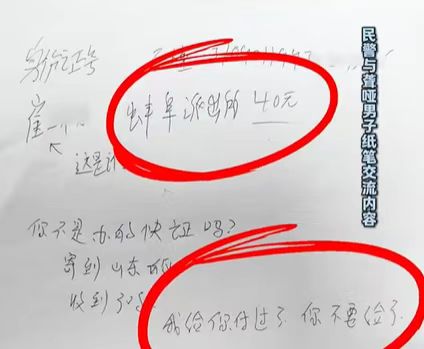 身份证号
崔一个
蚌阜派出所 40元
这是
你不是办的快证吗?
寄到山东
收到30
我给你付过了 你不要给了
民警与聋哑男子纸笔交流内容